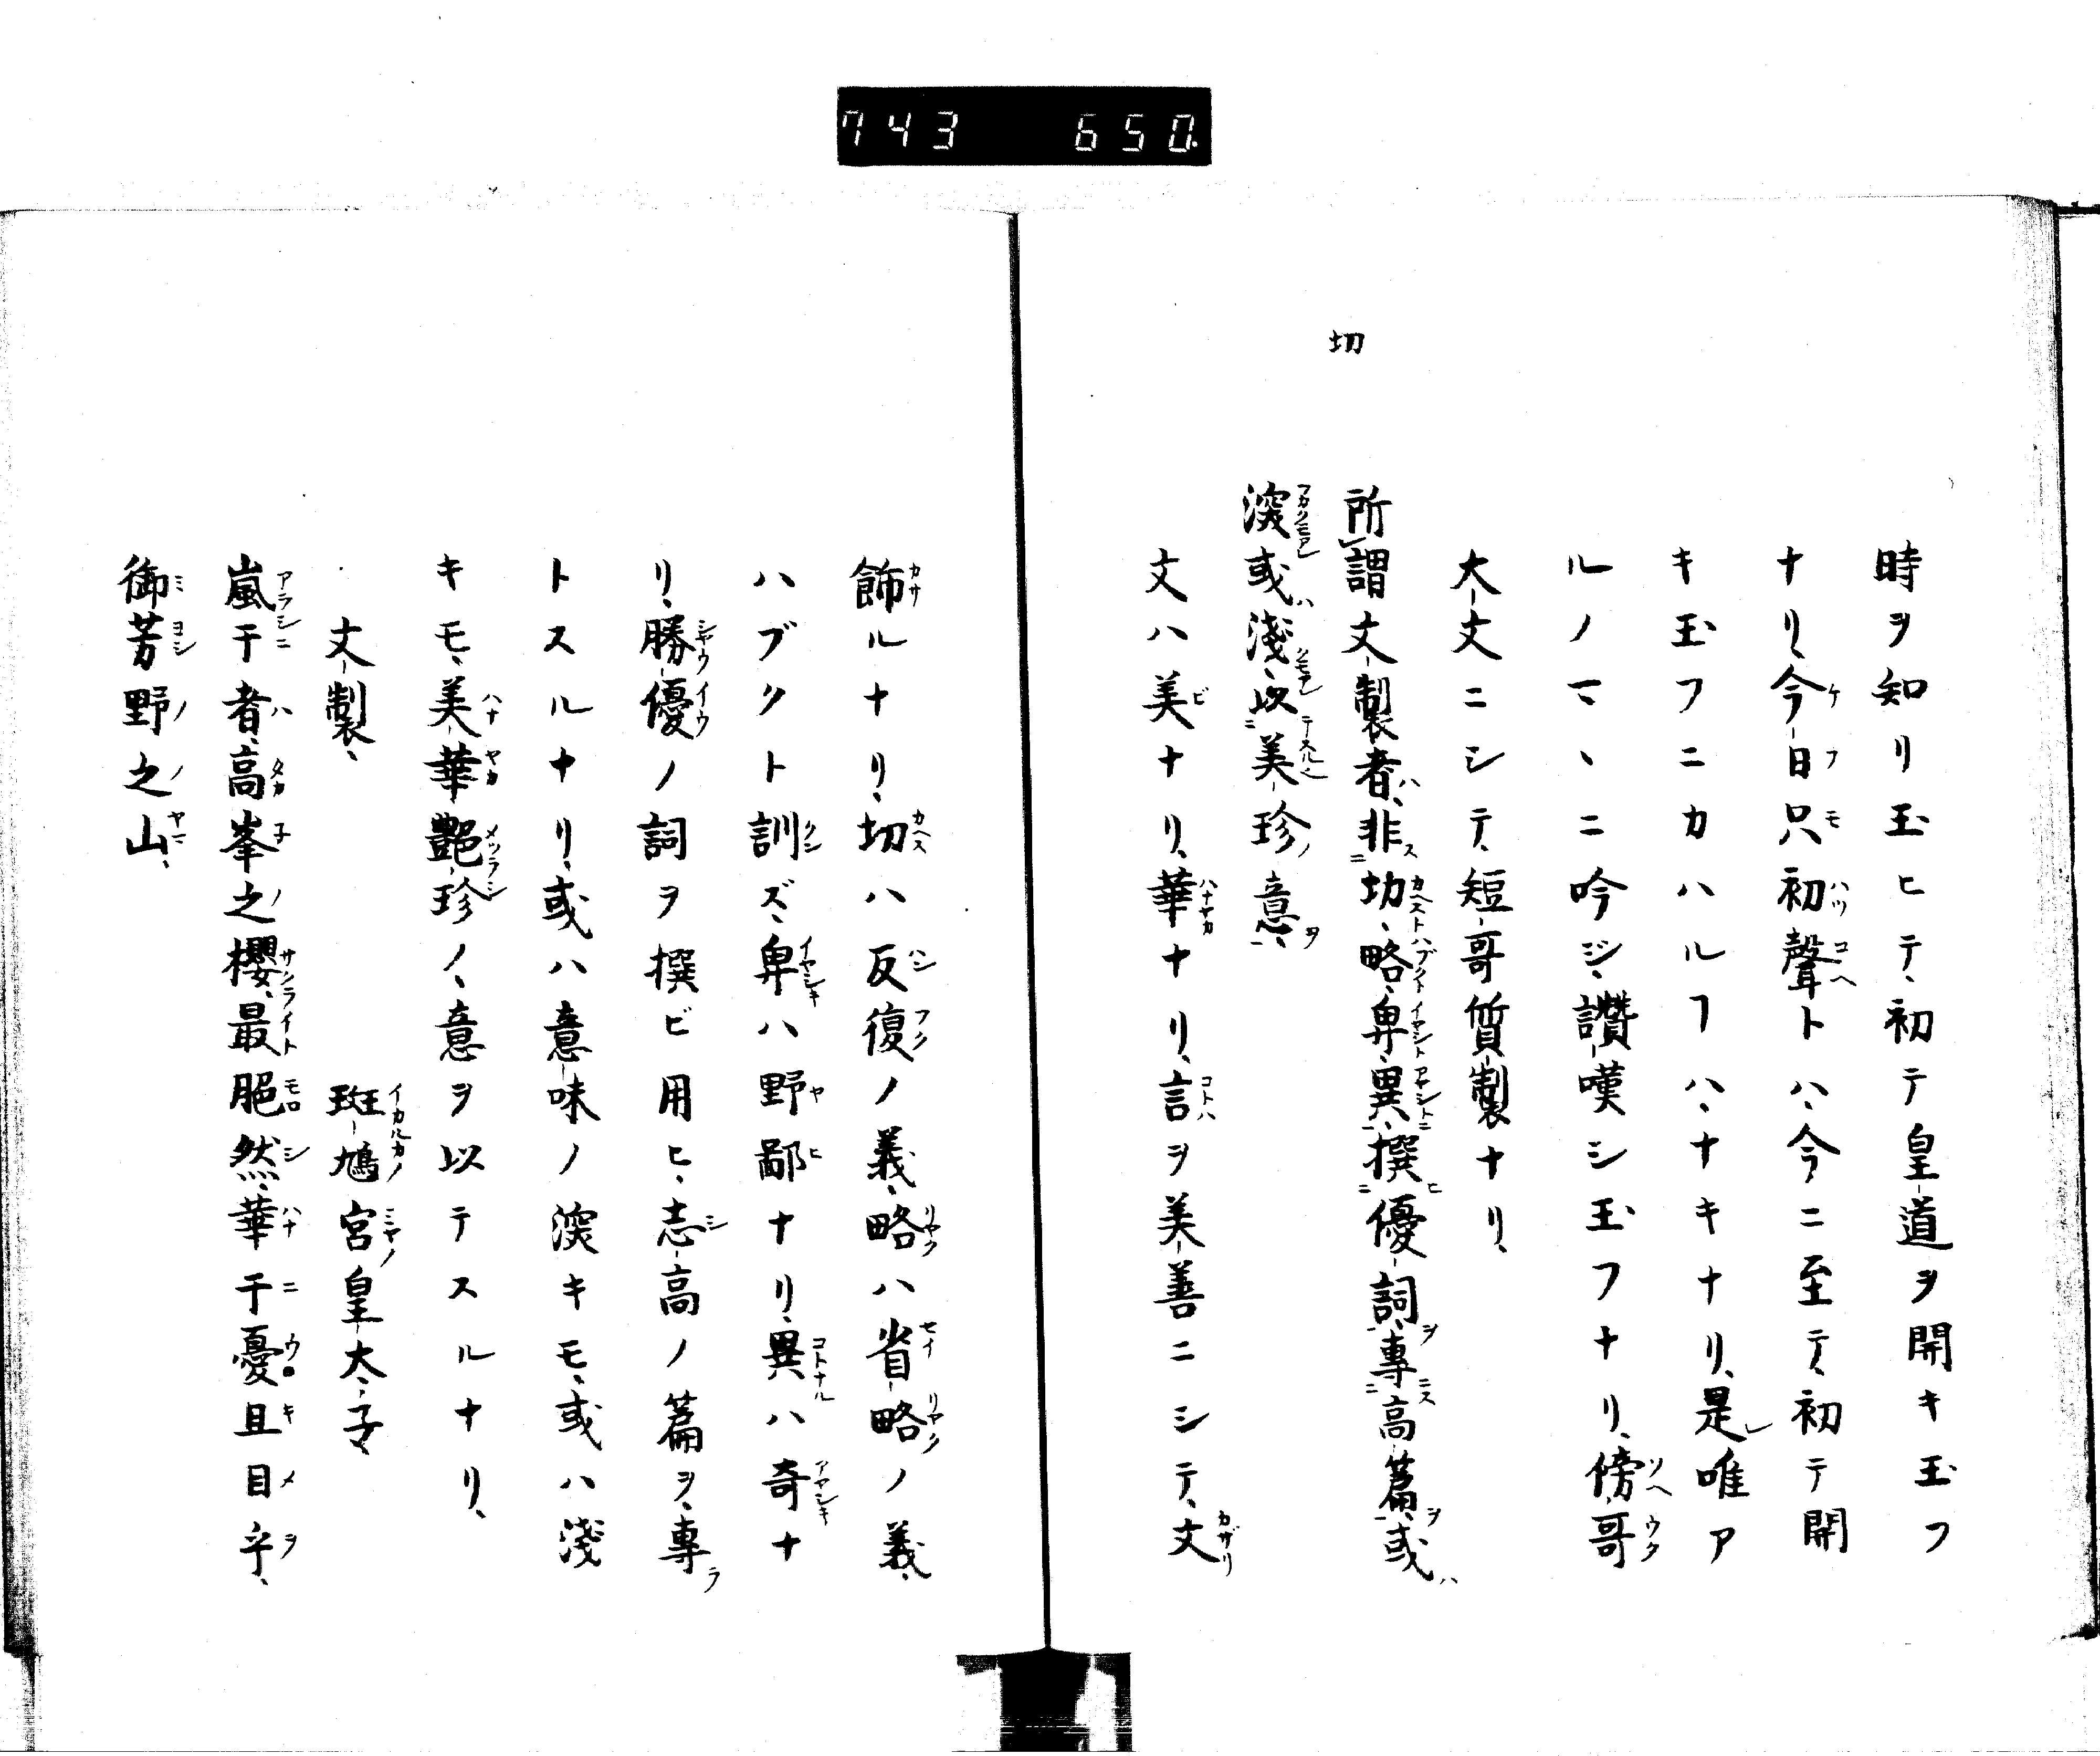 743 650
時ヲ知リ玉ヒテ、初テ皇道ヲ開キ玉フ
ナリ、今日只初聲トハ、今ニ至テ、初テ開
キ玉フニカハルヿハ、ナキナリ、是唯ア
ルノマヽニ吟ジ、讚嘆シ玉フナリ、傍哥
大丈ニシテ、短哥質製ナリ、
切
所謂文製者、非切、略、卑、異、撰優詞、專高篇、或
深或淺、以美珍意、
文ハ美ナリ、華ナリ、言ヲ美善ニシテ、文
飾ルナリ、切ハ反復ノ義、略ハ省略ノ義、
ハブクト訓ズ、卑ハ野鄙ナリ、異ハ奇ナ
リ、勝優ノ詞ヲ撰ビ用ヒ、志高ノ篇ヲ、專
トスルナリ、或ハ意味ノ深キモ、或ハ淺
キモ、美華艷珍ノ、意ヲ以テスルナリ、
文製、 斑鳩宮皇太子
嵐于者、高峯之櫻、最脆然、華于憂且目乎、
御芳野之山、